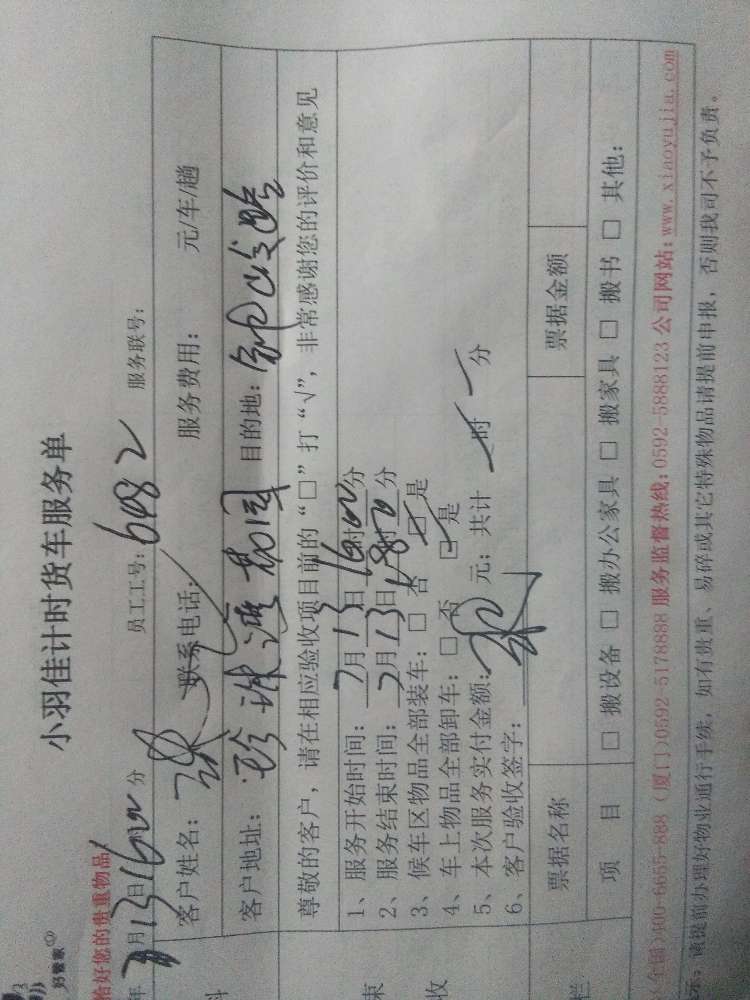 好管家
小羽佳计时货车服务单
恰好您的贵重物品
年 7月13日16时00分 员工工号: 6982 服务联号:
客户姓名: 联系电话: 服务费用: 元/车/趟
客户地址: 珍珠湾花园 目的地:
尊敬的客户，请在相应验收项目前的“□”打“√”，非常感谢您的评价和意见
1、服务开始时间: 7月13日16时00分
2、服务结束时间: 7月13日18时00分
3、候车区物品全部装车: □ 否 ☑ 是
4、车上物品全部卸车: □ 否 ☑ 是
5、本次服务实付金额: 元; 共计 时 分
6、客户验收签字:
束
收
票据名称 票据金额
栏 项 目 □ 搬设备 □ 搬办公家具 □ 搬家具 □ 搬书 □ 其他:
(全国)400-6655-888 (厦门)0592-5178888 服务监督热线:0592-5888123 公司网站:www.xiaoyujia.com
示: 请提前办理好物业通行手续, 如有贵重、易碎或其它特殊物品请提前申报, 否则我司不予负责。